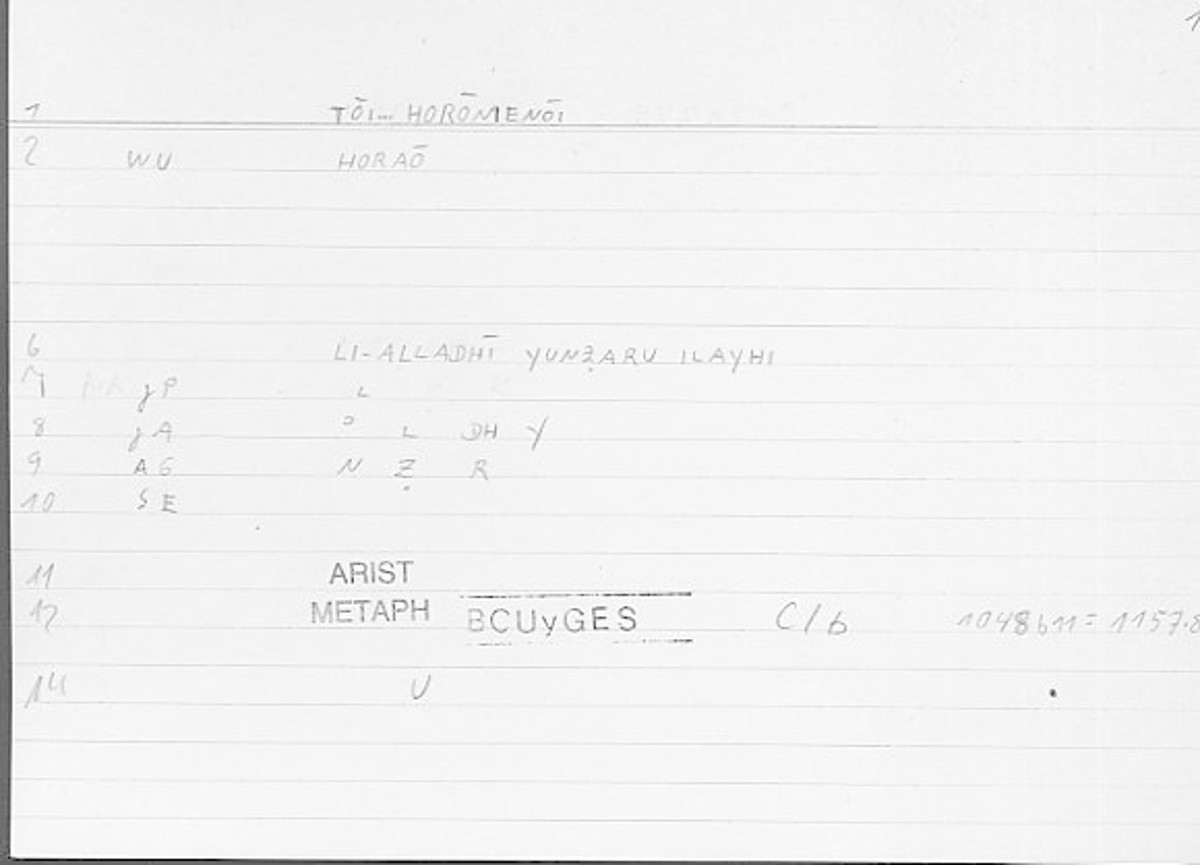 1
1 TŌI... HORŌMENŌI
2 WU HORAŌ
6 LI-ALLADHĪ YUNẒARU ILAYHI
7 jP L
8 jA ʾ L DH Y
9 AG N Ẓ R
10 SE
11 ARIST
12 METAPH BCUyGES C/b 1048b11= 1157.8
14 U